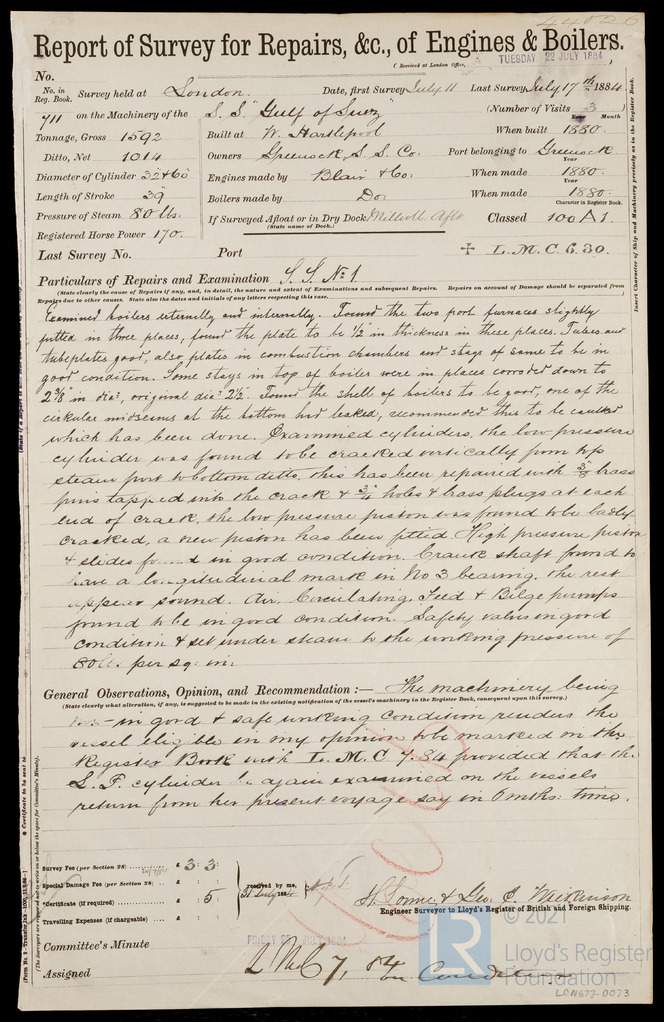 44026
Report of Survey for Repairs, &c., of Engines & Boilers.
(Received at London Office, TUESDAY 22 JULY 1884
No.
No. in Reg. Book. Survey held at London. Date, first Survey July 11 Last Survey July 17th 1884
711 on the Machinery of the S.S. "Gulf of Suez" (Number of Visits 3)
Year Month
Tonnage, Gross 1592 Built at W. Hartlepool When built 1880.
Ditto, Net 1014 Owners Greenock S. S. Co. Port belonging to Greenock
Year
Diameter of Cylinder 32 & 60 Engines made by Blair & Co. When made 1880.
Year
Length of Stroke 39 Boilers made by Do. When made 1880.
Character in Register Book.
Pressure of Steam 80 lbs. If Surveyed Afloat or in Dry Dock Millwall Aflt Classed 100 A 1.
(State name of Dock.)
Registered Horse Power 170.
Last Survey No. Port ✠ L. M. C. 6. 80.
Particulars of Repairs and Examination S. S. No. 1
(State clearly the cause of Repairs if any, and, in detail, the nature and extent of Examinations and subsequent Repairs. Repairs on account of Damage should be separated from
Repairs due to other causes. State also the dates and initials of any letters respecting this case.
Examined boilers externally and internally. Found the two port furnaces slightly
pitted in three places, found the plate to be 1/2" in thickness in these places. Tubes and
tubeplates good, also plates in combustion chambers and stays of same to be in
good condition. Some stays in top of boiler were in places corroded down to
2 3/8" in dia., original dia. 2 1/2". Found the shell of boilers to be good, one of the
circular midseams at the bottom had leaked, recommended this to be caulked
which has been done. Examined cylinders, the low pressure
cylinder was found to be cracked vertically from top
steam port to bottom ditto, this has been repaired with 3/8" brass
pins tapped into the crack & 3/4" holes & brass plugs at each
end of crack, the low pressure piston was found to be badly
cracked, a new piston has been fitted. High pressure piston
& slides found in good condition. Crank shaft found to
have a longitudinal mark in No 3 bearing, the rest
appears sound. Air, Circulating, Feed & Bilge pumps
found to be in good condition. Safety valves in good
condition & set under steam to the working pressure of
80 lbs. per sq. in.
General Observations, Opinion, and Recommendation :— The machinery being
(State clearly what alteration, if any, is suggested to be made in the existing notification of the vessel's machinery in the Register Book, consequent upon this survey.)
in good & safe working condition renders the
vessel eligible in my opinion to be marked on the
Register Book with L. M. C. 7. 84 provided that the
L. P. cylinder be again examined on the vessels
return from her present voyage say in 6 mths. time.
Survey Fee (per Section 28) £ 3 : 3 :
Special Damage Fee (per Section 28) £ : :
*Certificate (if required) £ : 5 :
Travelling Expenses (if chargeable) £ : :
received by me,
Geo. C. Wilkinson
Engineer Surveyor to Lloyd's Register of British and Foreign Shipping.
Committee's Minute FRIDAY 25 JULY 1884
Assigned
© 2021
Lloyd's Register
Foundation
LON673-0073
Insert Character of Ship and Machinery precisely as in the Register Book.
* Certificate to be sent to
(The Surveyors are requested not to write on or below the space for Committee's Minute).